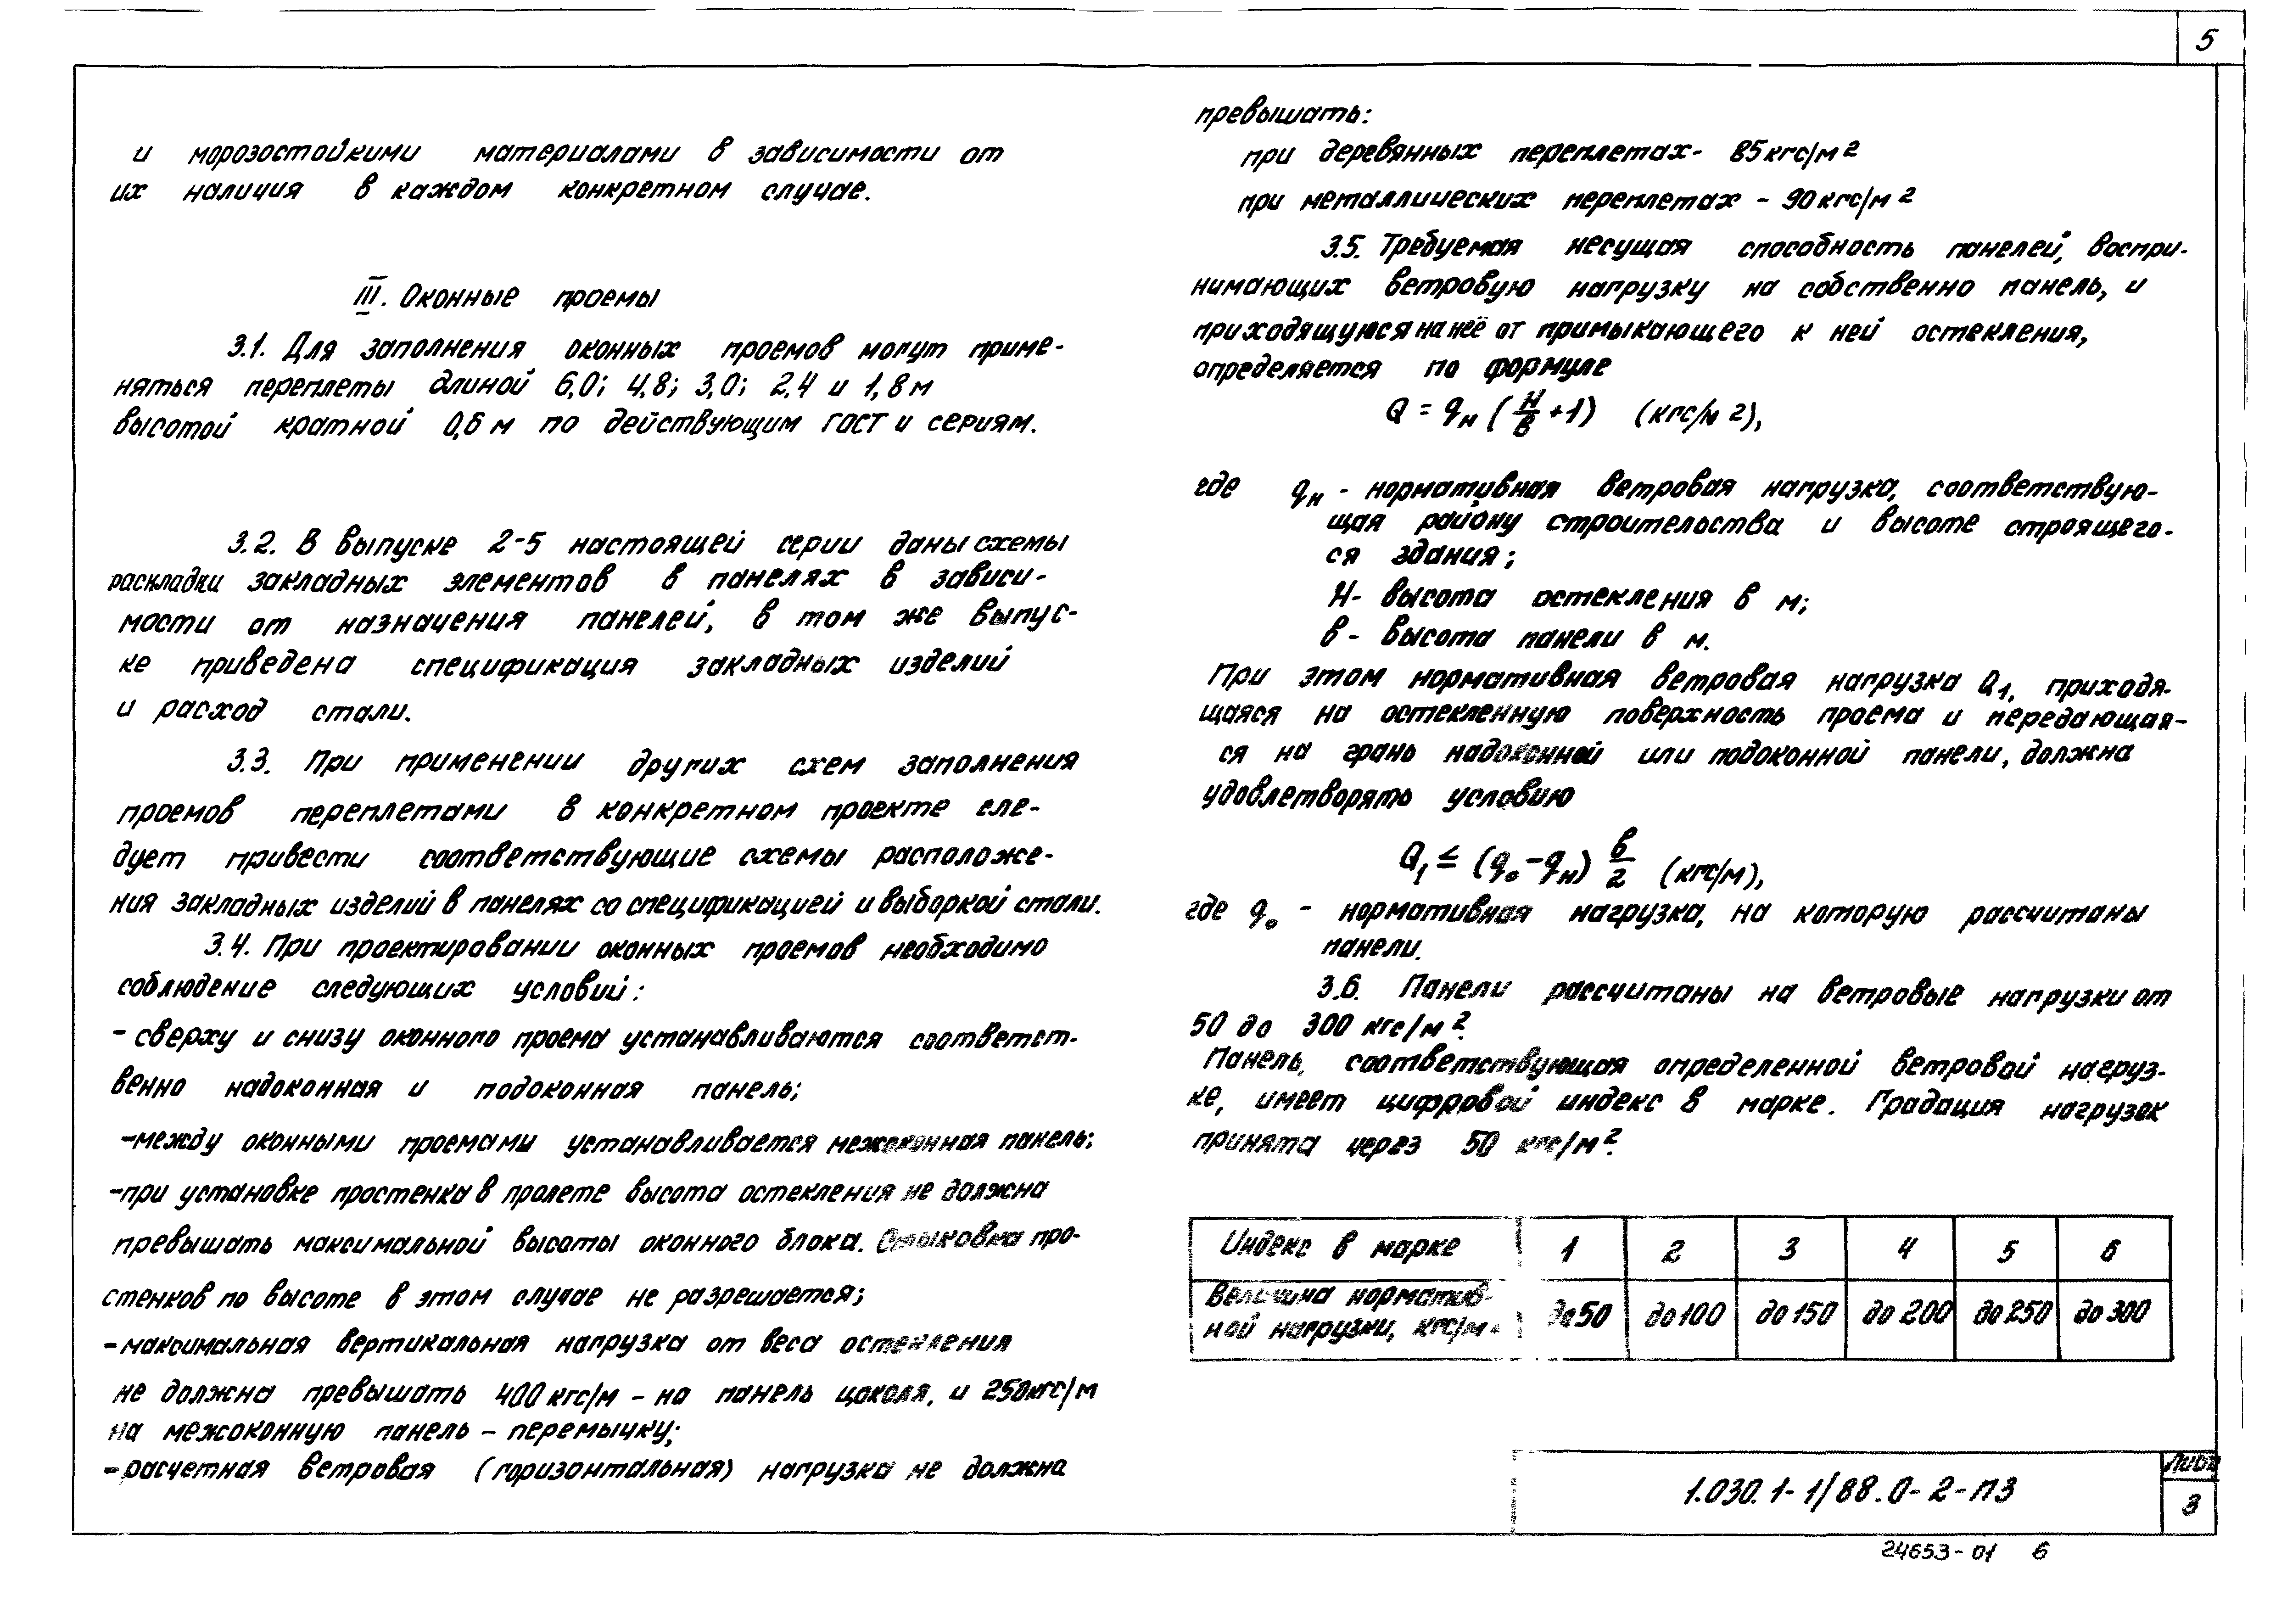 5
и морозостойкими материалами в зависимости от
их наличия в каждом конкретном случае.
III. Оконные проемы
3.1. Для заполнения оконных проемов могут приме-
няться переплеты длиной 6,0; 4,8; 3,0; 2,4 и 1,8 м
высотой кратной 0,6 м по действующим ГОСТ и сериям.
3.2. В выпуске 2-5 настоящей серии даны схемы
раскладки закладных элементов в панелях в зависи-
мости от назначения панелей, в том же выпус-
ке приведена спецификация закладных изделий
и расход стали.
3.3. При применении других схем заполнения
проемов переплетами в конкретном проекте сле-
дует привести соответствующие схемы расположе-
ния закладных изделий в панелях со спецификацией и выборкой стали.
3.4. При проектировании оконных проемов необходимо
соблюдение следующих условий:
- сверху и снизу оконного проема устанавливаются соответст-
венно надоконная и подоконная панель;
- между оконными проемами устанавливается межоконная панель;
- при установке простенка в пролете высота остекления не должна
превышать максимальной высоты оконного блока. Стыковка про-
стенков по высоте в этом случае не разрешается;
- максимальная вертикальная нагрузка от веса остекления
не должна превышать 400 кгс/м - на панель цоколя, и 250 кгс/м
на межоконную панель - перемычку;
- расчетная ветровая (горизонтальная) нагрузка не должна
превышать:
при деревянных переплетах - 85 кгс/м2
при металлических переплетах - 90 кгс/м2
3.5. Требуемая несущая способность панелей, воспри-
нимающих ветровую нагрузку на собственно панель, и
приходящуюся на неё от примыкающего к ней остекления,
определяется по формуле
Q = qн (H/в + 1) (кгс/м2),
где qн - нормативная ветровая нагрузка, соответствую-
щая району строительства и высоте строящего-
ся здания;
H - высота остекления в м;
в - высота панели в м.
При этом нормативная ветровая нагрузка Q1, приходя-
щаяся на остекленную поверхность проема и передающая-
ся на грань надоконной или подоконной панели, должна
удовлетворять условию
Q1 ≤ (qо - qн) в/2 (кгс/м),
где qо - нормативная нагрузка, на которую рассчитаны
панели.
3.6. Панели рассчитаны на ветровые нагрузки от
50 до 300 кгс/м2.
Панель, соответствующая определенной ветровой нагруз-
ке, имеет цифровой индекс в марке. Градация нагрузок
принята через 50 кгс/м2.
Индекс в марке 1 2 3 4 5 6
Величина норматив-
ной нагрузки, кгс/м до 50 до 100 до 150 до 200 до 250 до 300
1.030.1-1/88.0-2-ПЗ
Лист
3
24653-01 6